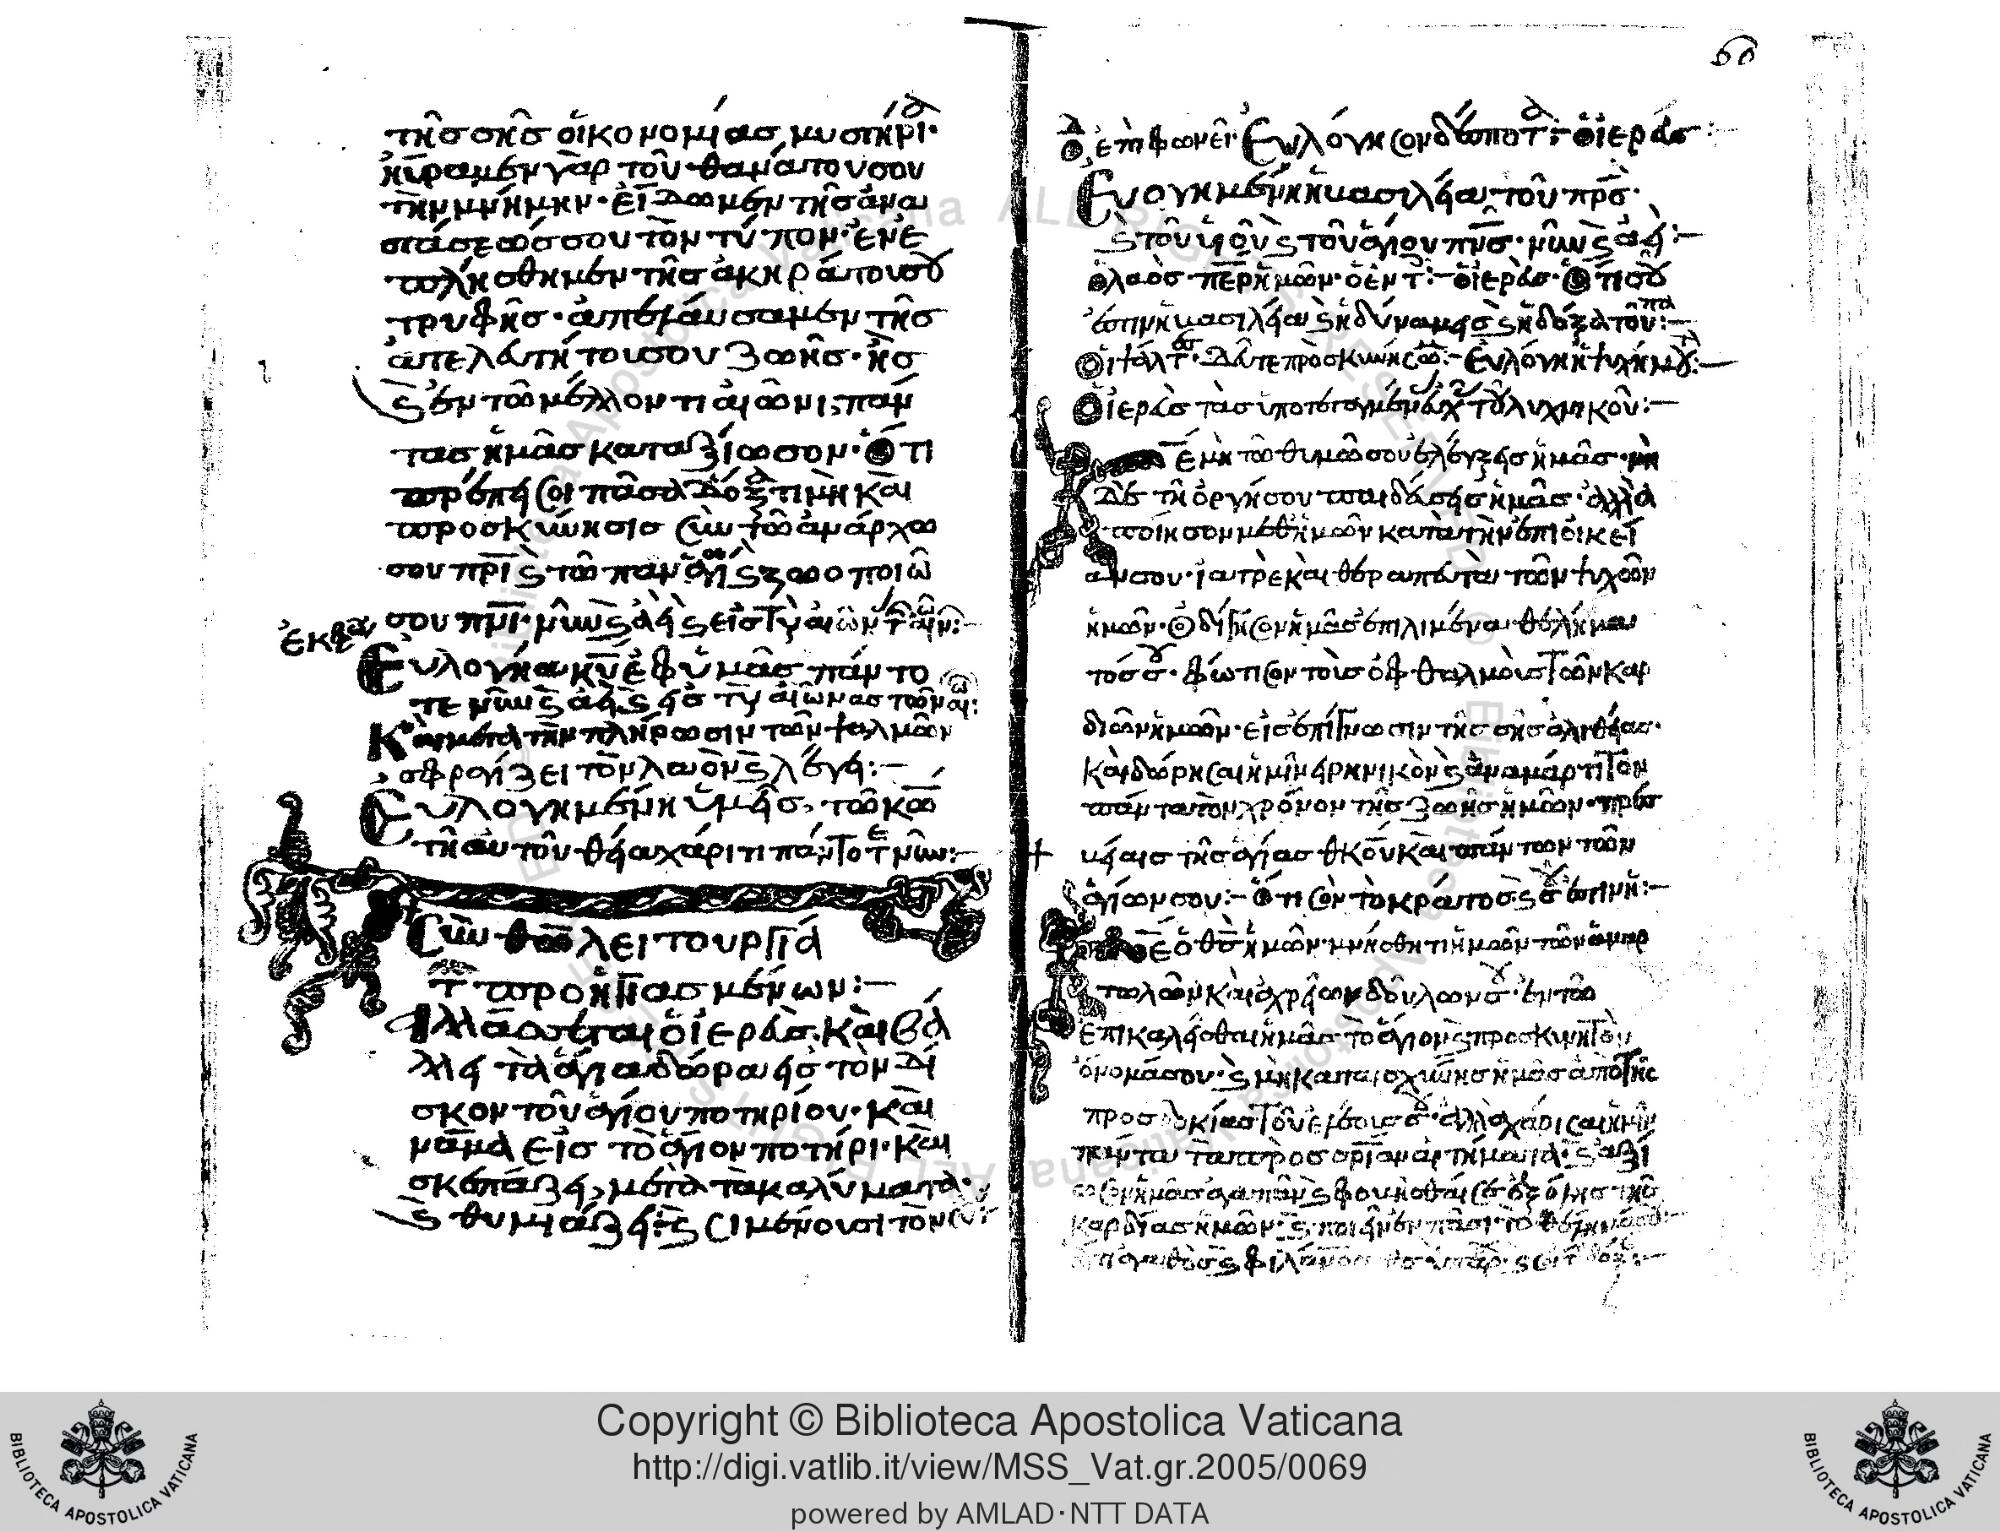 τῆς σῆς οἰκονομίας μυστήρι·
ηὕραμεν γὰρ τοῦ θανάτου σου
τὴν μνήμην· εἴδωμεν τῆς ἀνα
στάσεώς σου τὸν τύπον· ἐνε
πλήσθημεν τῆς ἀκηράτου σου
τρυφῆς· ἀπελαύσαμεν τῆς
ἀτελευτήτου σου ζωῆς· ἧς
καὶ ἐν τῶ μέλλοντι αἰῶνι, πάν
τας ἡμᾶς καταξίωσον· ὅτι
πρέπει σοι πᾶσα δόξα τιμὴ καὶ
προσκύνησις σὺν τῶ ἀνάρχω
σου πρὶ καὶ τῶ παναγίω καὶ ζωοποιῶ
σου πνι· νῦν καὶ ἀεὶ καὶ εἰς τοὺς αἰῶν τ αἰν:-
ἐκφω
Εὐλογία κυ ἐφ ὑμᾶς πάντο
τε νῦν καὶ ἀεὶ καὶ εἰς τοὺς αἰῶνας τῶν αἰ:
Καὶ μετὰ τὴν πλήρωσιν τῶν ψαλμῶν
σφραγίζει τὸν λαὸν καὶ λέγει:-
Εὐλογημένη ὑμεῖς, τῶ κῶ
τῆ αὐτοῦ θεία χάριτι πάντοτε νῦν:-
Σὺν θῶ λειτουργία
τ προηγιασμένων:-
Ἀλλάσσεται ὁ ἱερεὺς· καὶ βά
λλει τὰ ἅγια δῶρα εἰς τὸν δί
σκον τοῦ ἁγίου ποτηρίου· καὶ
νᾶμα εἰς τὸ ἅγιον ποτήρι· καὶ
σκεπάζει, μετὰ τὰ καλύματα·
καὶ θυμιάζει: καὶ σιμένουσι τὸν
60
Ὁ δ ἐπιφωνεῖ· Εὐλόγησον δέσποτ: ὁ ἱερεύς:-
Ευογημένη ἡ βασιλεία τοῦ πρς·
καὶ τοῦ υἱοῦ καὶ τοῦ ἁγίου πνς· νῦν καὶ ἀεὶ:-
ὁ λαὸς· περ ἡμῶν· ὁ ἐν τ:- ὁ ἱερεὺς· Ὅτι σοῦ
ἐστιν ἡ βασιλεία καὶ ἡ δύναμις καὶ ἡ δόξα τοῦ πα:-
Οἱ ψάλτ· Δεῦτε προσκυνήσω:- Εὐλόγη ἡ ψυχή μου:-
Ὁ ἱερεὺς τὰς ὑποτεταγμένας εὐχ τοῦ λυχνικοῦ:-
Κε μὴ τῶ θυμῶ σου ἐλέγξης ἡμᾶς· μὴ
δὲ τῆ ὀργή σου παιδεύσης ἡμᾶς· ἀλλὰ
ποίησον μεθ ἡμῶν κατὰ τὴν ἐπιείκει
αν σου· ἰατρὲ καὶ θεραπευτὰ τῶν ψυχῶν
ἡμῶν· Ὁδίγησον ἡμᾶς ἐπι λιμένα θελήμα
τός σου· φώτισον τοὺς ὀφθαλμοὺς τῶν καρ
διῶν ἡμῶν· εἰς ἐπίγνωσιν τῆς σῆς ἀλιθείας·
Καὶ δώρησαι ἡμῖν εἰρηνικὸν καὶ ἀναμάρτιτον
πάντα τὸν χρόνον τῆς ζωῆς ἡμῶν· πρεσ
βείαις τῆς ἁγίας θκου καὶ πάντων τῶν
ἁγίων σου:- Ὅτι σὸν τὸ κράτος καὶ σοῦ ἐστιν ἡ:-
Κε ὁ θς ἡμῶν· μνήσθητι ἡμῶν τῶν ἁμαρ
τωλῶν καὶ ἀχρείων δούλων σου· ἐν τῶ
ἐπικαλεῖσθαι ἡμᾶς τὸ ἅγιον καὶ προσκυνητὸν
ὄνομά σου· καὶ μὴ καταισχύνης ἡμᾶς ἀπὸ τῆς
προσδοκίας τοῦ ἐλέους σου· ἀλλὰ χάρισαι ἡμῖν
πάντα τὰ πρὸς σρίαν αἰτήματα· καὶ ἀξί
ωσον ἡμᾶς ἀγαπᾶν καὶ φοβεῖσθαί σε ἐξ ὅλης τῆς
καρδίας ἡμῶν· καὶ ποιεῖν ἐν πᾶσι· τὸ θέλημά σου:-
ὅτι ἀγαθὸς καὶ φιλάνος θς ὑπάρ· καὶ σοὶ τ δόξ:-
Copyright © Biblioteca Apostolica Vaticana
http://digi.vatlib.it/view/MSS_Vat.gr.2005/0069
powered by AMLAD·NTT DATA
BIBLIOTECA APOSTOLICA VATICANA
BIBLIOTECA APOSTOLICA VATICANA